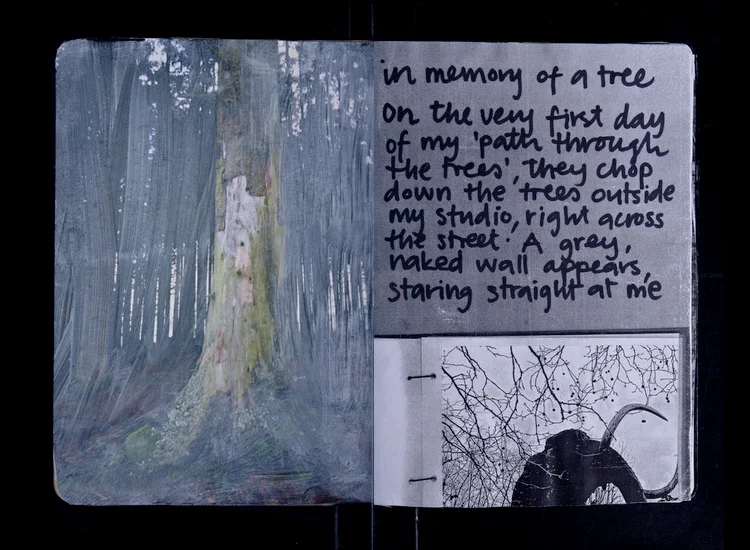 in memory of a tree
on the very first day
of my 'path through
the trees', they chop
down the trees outside
my studio, right across
the street. A grey,
naked wall appears,
staring straight at me